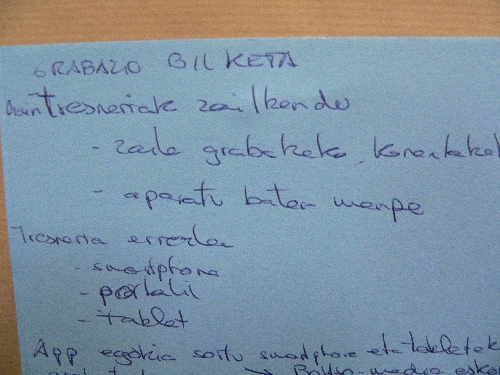 GRABAZIO BILKETA
Orain tresneriak zailkendu
- zaila grabatzeko, konektatzek
- aparatu baten menpe
Tresneria erreza
- smartphona
- portatil
- tablet
App egokia sortu smartphone eta tabletek
→ Boltso-media esko